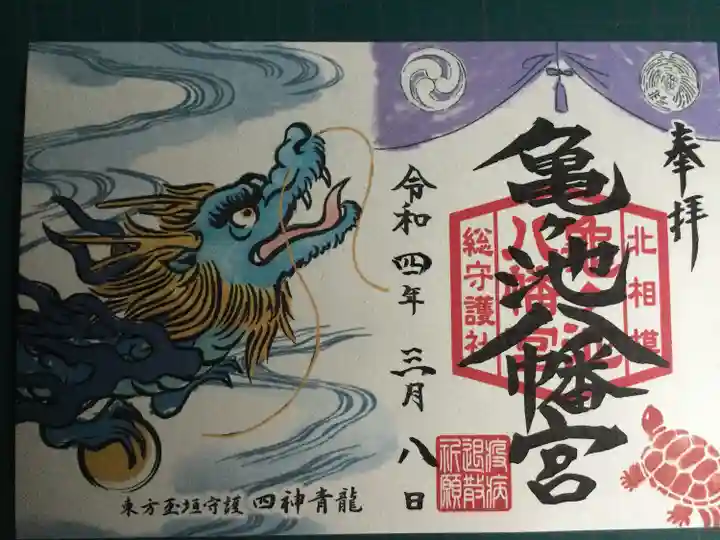 奉拝
亀ヶ池八幡宮
北相模
亀ヶ池
八幡宮
総守護社
令和四年 三月 八日
疫病
退散
祈願
東方玉垣守護 四神青龍